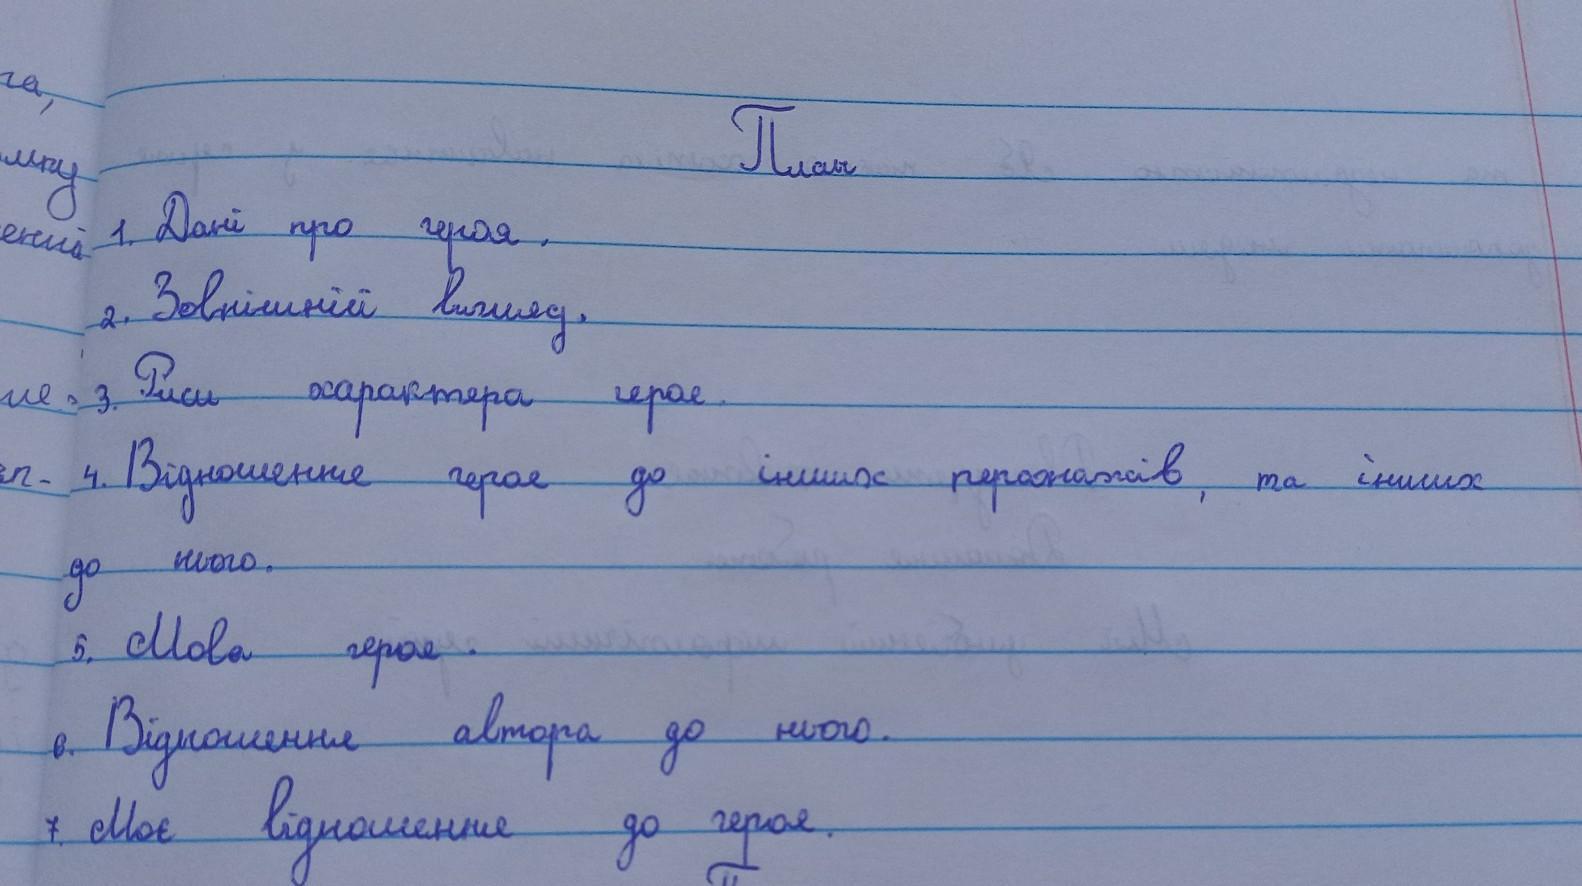 План
1. Дані про героя.
2. Зовнішній вигляд.
3. Риси характера героя.
4. Відношення героя до інших персонажів, та інших
до нього.
5. Мова героя.
6. Відношення автора до нього.
7. Моє відношення до героя.